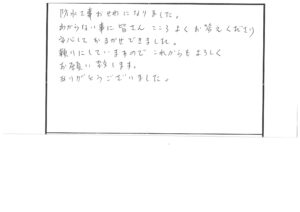 防水工事お世わになりました。
わからない事に皆さん こころよくお答えくださり
安心して おまかせできました。
頼りにしていますので これからもよろしく
お願い致します。
ありがとうございました。